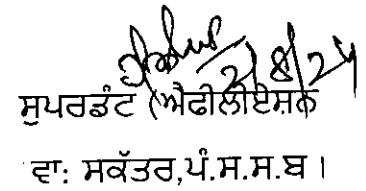 2/8/24
ਸੁਪਰਡੰਟ (ਐਫੀਲੀਏਸ਼ਨ
ਵਾ: ਸਕੱਤਰ,ਪੰ.ਸ.ਸ.ਬ।